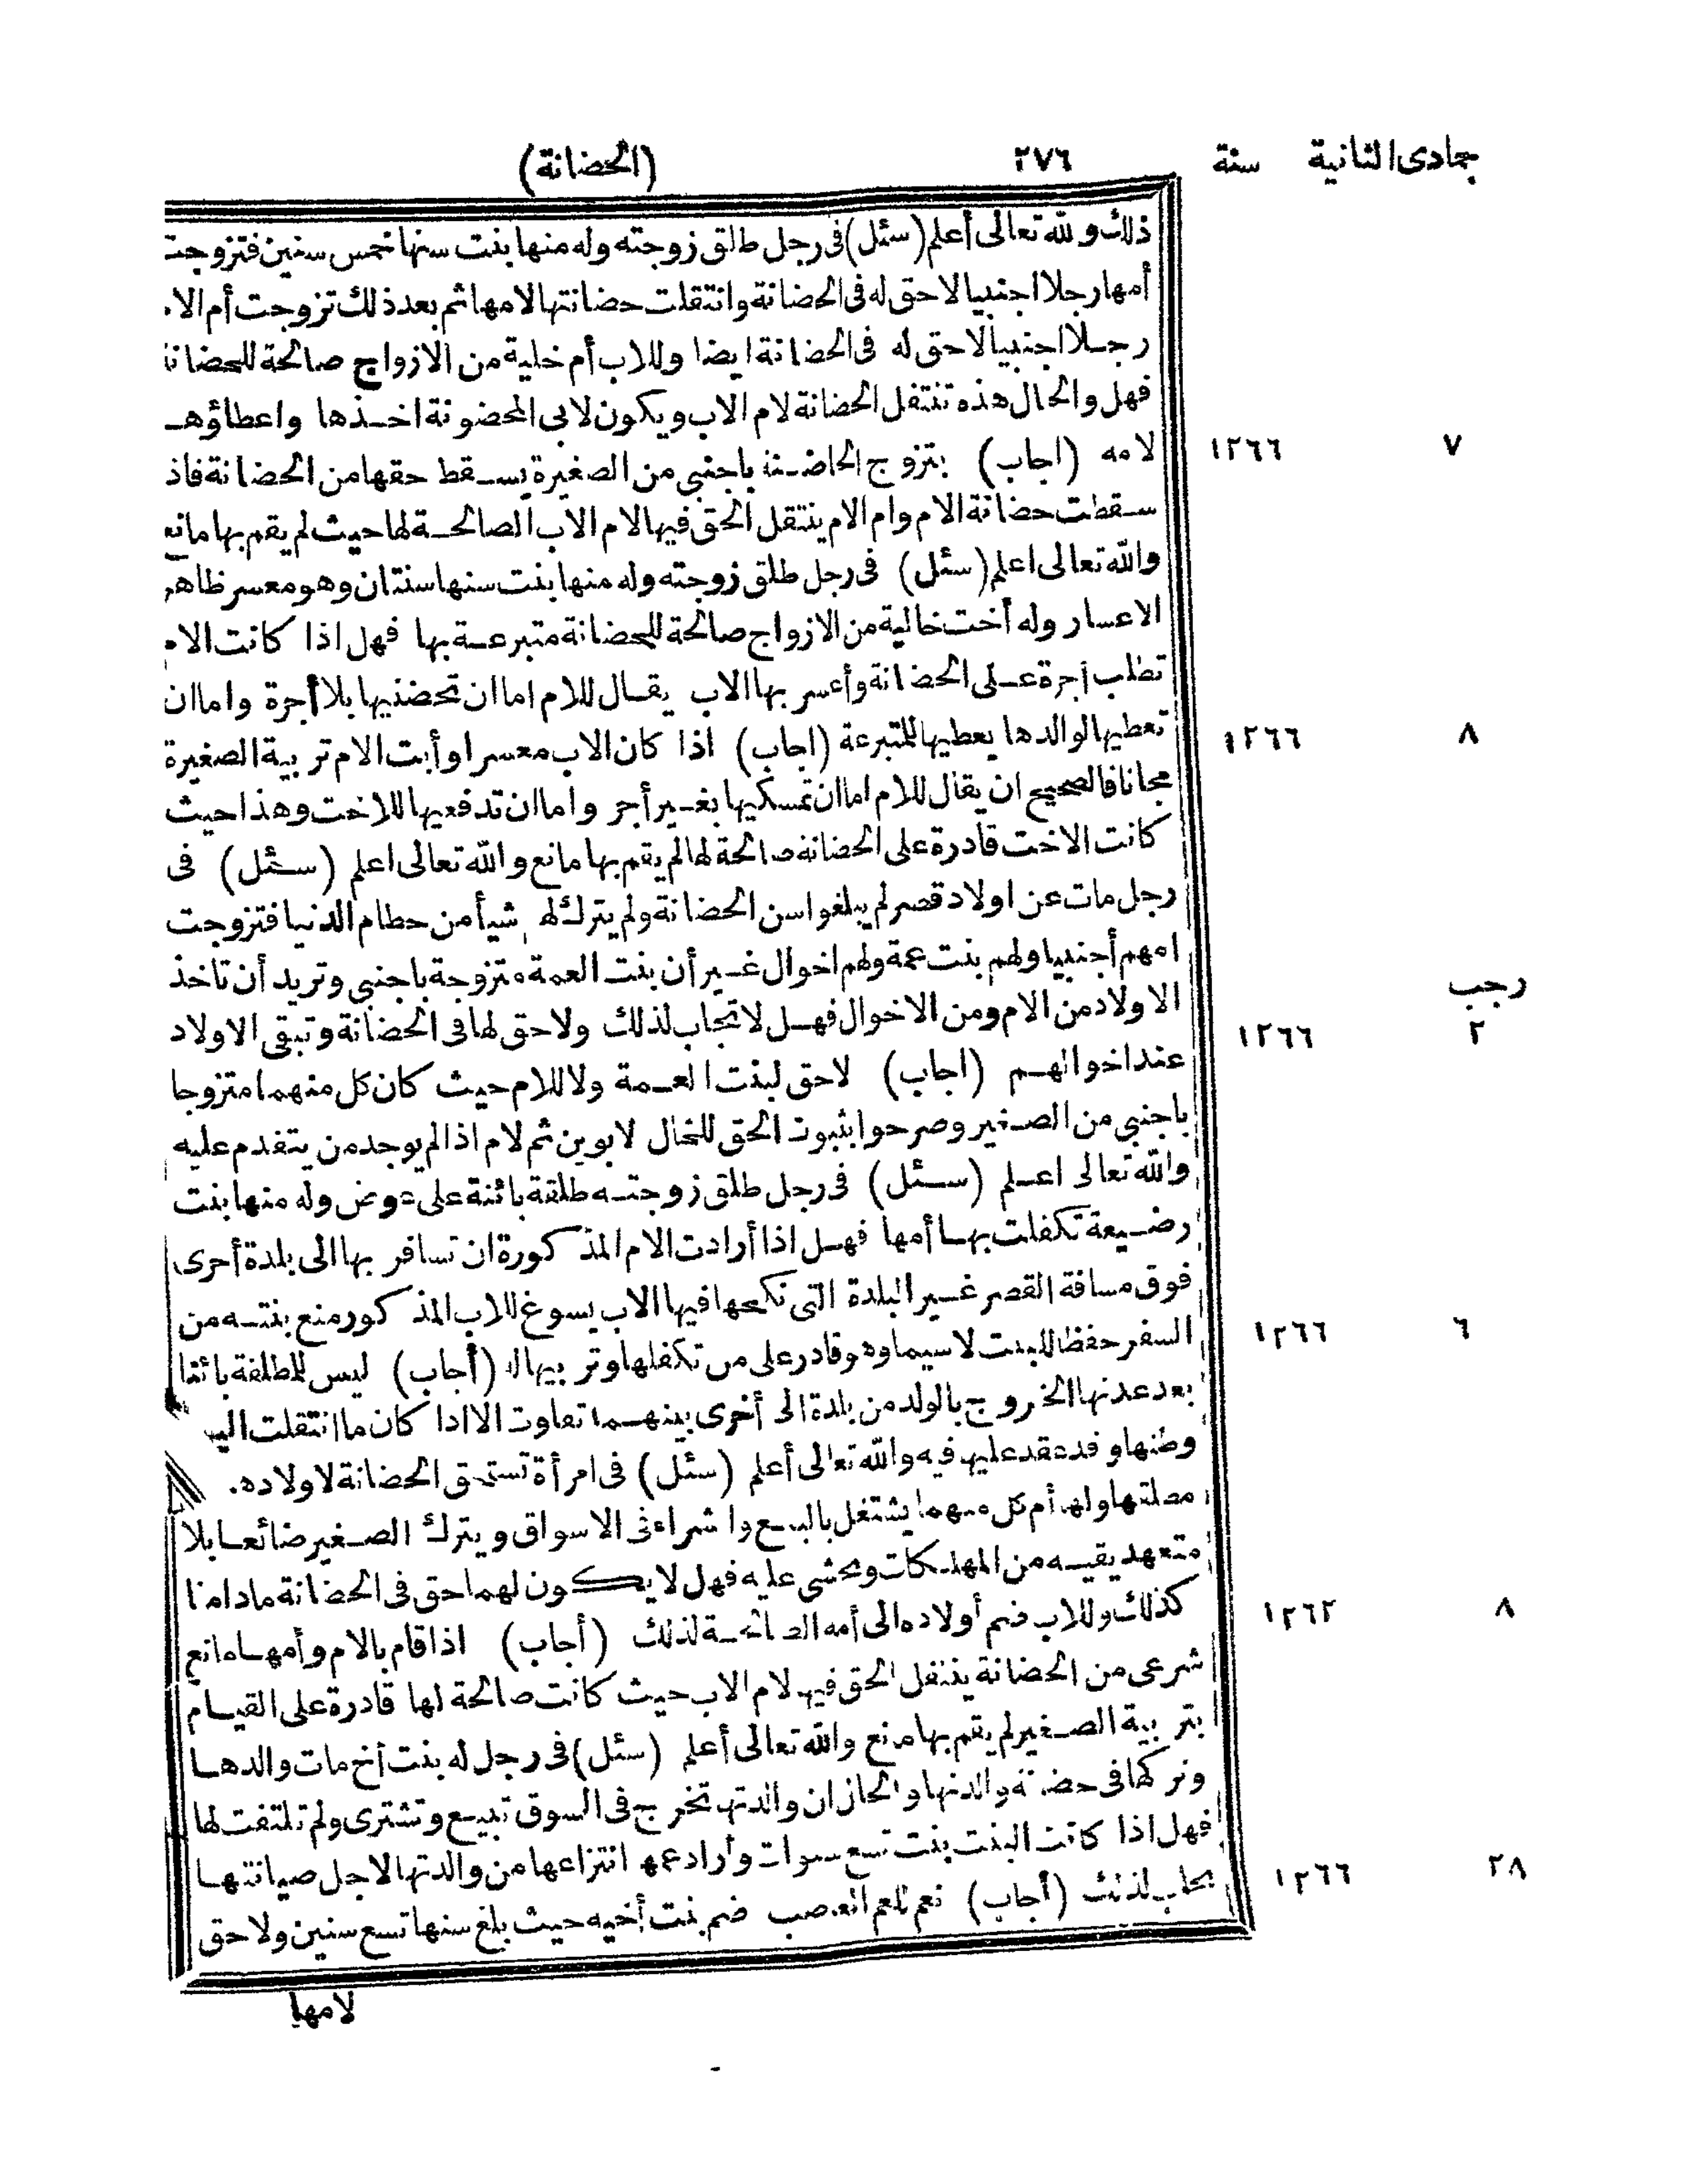 جمادى الثانية سنة ٢٧٦ (الحضانة)
ذلك والله تعالى أعلم (سئل) فى رجل طلق زوجته وله منها بنت سنها خمس سنين فتزوجت
أمها رجلا اجنبيا لاحق له فى الحضانة وانتقلت حضانتها لامها ثم بعد ذلك تزوجت أم الام
رجلا اجنبيا لاحق له فى الحضانة ايضا وللاب أم خلية من الازواج صالحة للحضانة
فهل والحال هذه تنتقل الحضانة لام الاب ويكون لابى المحضونة اخذها واعطاؤها
لامه (اجاب) بتزوج الحاضنة باجنبى من الصغيرة يسقط حقها من الحضانة فاذا ١٢٦٦ ٧
سقطت حضانة الام وام الام ينتقل الحق فيها لام الاب الصالحة لها حيث لم يقم بها مانع
والله تعالى اعلم (سئل) فى رجل طلق زوجته وله منها بنت سنها سنتان وهو معسر ظاهر
الاعسار وله أخت خالية من الازواج صالحة للحضانة متبرعة بها فهل اذا كانت الام
تطلب أجرة على الحضانة وأعسر بها الاب يقال للام اما ان تحضنيها بلا أجرة واما ان
تعطيها لوالدها يعطيها للمتبرعة (اجاب) اذا كان الاب معسرا وأبت الام تربية الصغيرة ١٢٦٦ ٨
مجانا فالصحيح ان يقال للام اما ان تمسكيها بغير أجر واما ان تدفعيها للاخت وهذا حيث
كانت الاخت قادرة على الحضانة صالحة لها لم يقم بها مانع والله تعالى اعلم (سئل) فى
رجل مات عن اولاد قصر لم يبلغوا سن الحضانة ولم يترك لهم شيأ من حطام الدنيا فتزوجت
امهم أجنبيا ولهم بنت عمة ولهم اخوال غير أن بنت العمة متزوجة باجنبى وتريد أن تاخذ
رجب
الاولاد من الام ومن الاخوال فهل لا تجاب لذلك ولاحق لها فى الحضانة وتبقى الاولاد ١٢٦٦ ٢
عند اخوالهم (اجاب) لاحق لبنت العمة ولا للام حيث كان كل منهما متزوجا
باجنبى من الصغير وصرحوا بثبوت الحق للخال لابوين ثم لام اذا لم يوجد من يتقدم عليه
والله تعالى اعلم (سئل) فى رجل طلق زوجته طلقة بائنة على عوض وله منها بنت
رضيعة تكفلت بها أمها فهل اذا أرادت الام المذكورة ان تسافر بها الى بلدة أخرى
فوق مسافة القصر غير البلدة التى نكحها فيها الاب يسوغ للاب المذكور منع بنته من
السفر حفظا للبنت لا سيما وهو قادر على من تكفلها وتربيها له (أجاب) ليس للمطلقة بائنا ١٢٦٦ ٦
بعد عدتها الخروج بالولد من بلدة الى أخرى بينهما تفاوت الا اذا كان ما انتقلت اليه
وطنها وقد عقد عليها فيه والله تعالى أعلم (سئل) فى امرأة تستحق الحضانة لاولاده
مطلقها ولها أم كل منهما يشتغل بالبيع والشراء فى الاسواق ويترك الصغير ضائعا بلا
متعهد يقيه من المهلكات ويخشى عليه فهل لا يكون لهما حق فى الحضانة ما داما
كذلك وللاب ضم أولاده الى أمه الصالحة لذلك (أجاب) اذا قام بالام وأمها مانع ١٢٦٢ ٨
شرعى من الحضانة ينتقل الحق فيها لام الاب حيث كانت صالحة لها قادرة على القيام
بتربية الصغير لم يقم بها مانع والله تعالى أعلم (سئل) فى رجل له بنت أخ مات والدها
وتركها فى حضانة والدتها والحال ان والدتها تخرج فى السوق تبيع وتشترى ولم تلتفت لها
فهل اذا كانت البنت بنت تسع سنوات وأراد عمها انتزاعها من والدتها لاجل صيانتها
يجاب لذلك (أجاب) نعم للعم العاصب ضم بنت أخيه حيث بلغ سنها تسع سنين ولاحق ١٢٦٦ ٢٨
لامها